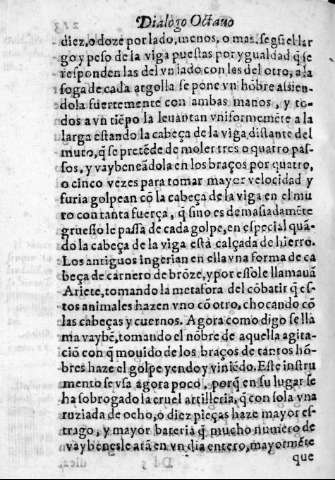 Dialogo Octauo
diez, o doze por lado, menos, o mas, segũ el lar
go y peso de la viga puestas por ygualdad q̃ se
responden las del vn lado con les del otro, a la
soga de cada argolla se pone vn hõbre assien-
dola fuertemente con ambas manos, y to-
dos a vn tiẽpo la leuantan vniformemẽte a la
larga estando la cabeça de la viga distante del
muro, q̃ se pretẽde de moler tres o quatro pas-
sos, y vaybeneãdola en los braços por quatro,
o cinco vezes para tomar mayor velocidad y
furia golpean cõ la cabeça de la viga en el mu
ro con tanta fuerça, q̃ sino es demasiadamẽte
gruesso le passa de cada golpe, en especial quã-
do la cabeça de la viga està calçada de hierro.
Los antiguos ingerian en ella vna forma de ca
beça de carnero de brõze, y por esso le llamauã
Ariete, tomando la metafora del cõbatir q̃ es-
tos animales hazen vno cõ otro, chocando cõ
las cabeças y cuernos. Agora como digo se lla
ma vaybẽ, tomando el nõbre de aquella agita-
ciõ con q̃ mouido de los braços de tantos hõ-
bres haze el golpe yendo y viniẽdo. Este instru
mento se vsa agora poco, porq̃ en su lugar se
ha sobrogado la cruel artilleria, q̃ con sola vna
ruziada de ocho, o diez pieças haze mayor es-
trago, y mayor bateria q̃ mucho numero de
vaybenes le arã en vn dia entero, mayormẽte
que